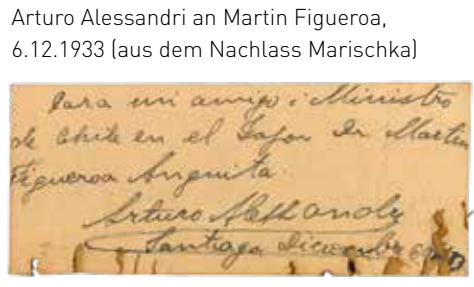 Arturo Alessandri an Martin Figueroa,
6.12.1933 (aus dem Nachlass Marischka)
Para mi amigo i Ministro
de Chile en el Japon Dr Martin
Figueroa Anguita.
Arturo Alessandri
Santiago Diciembre 6